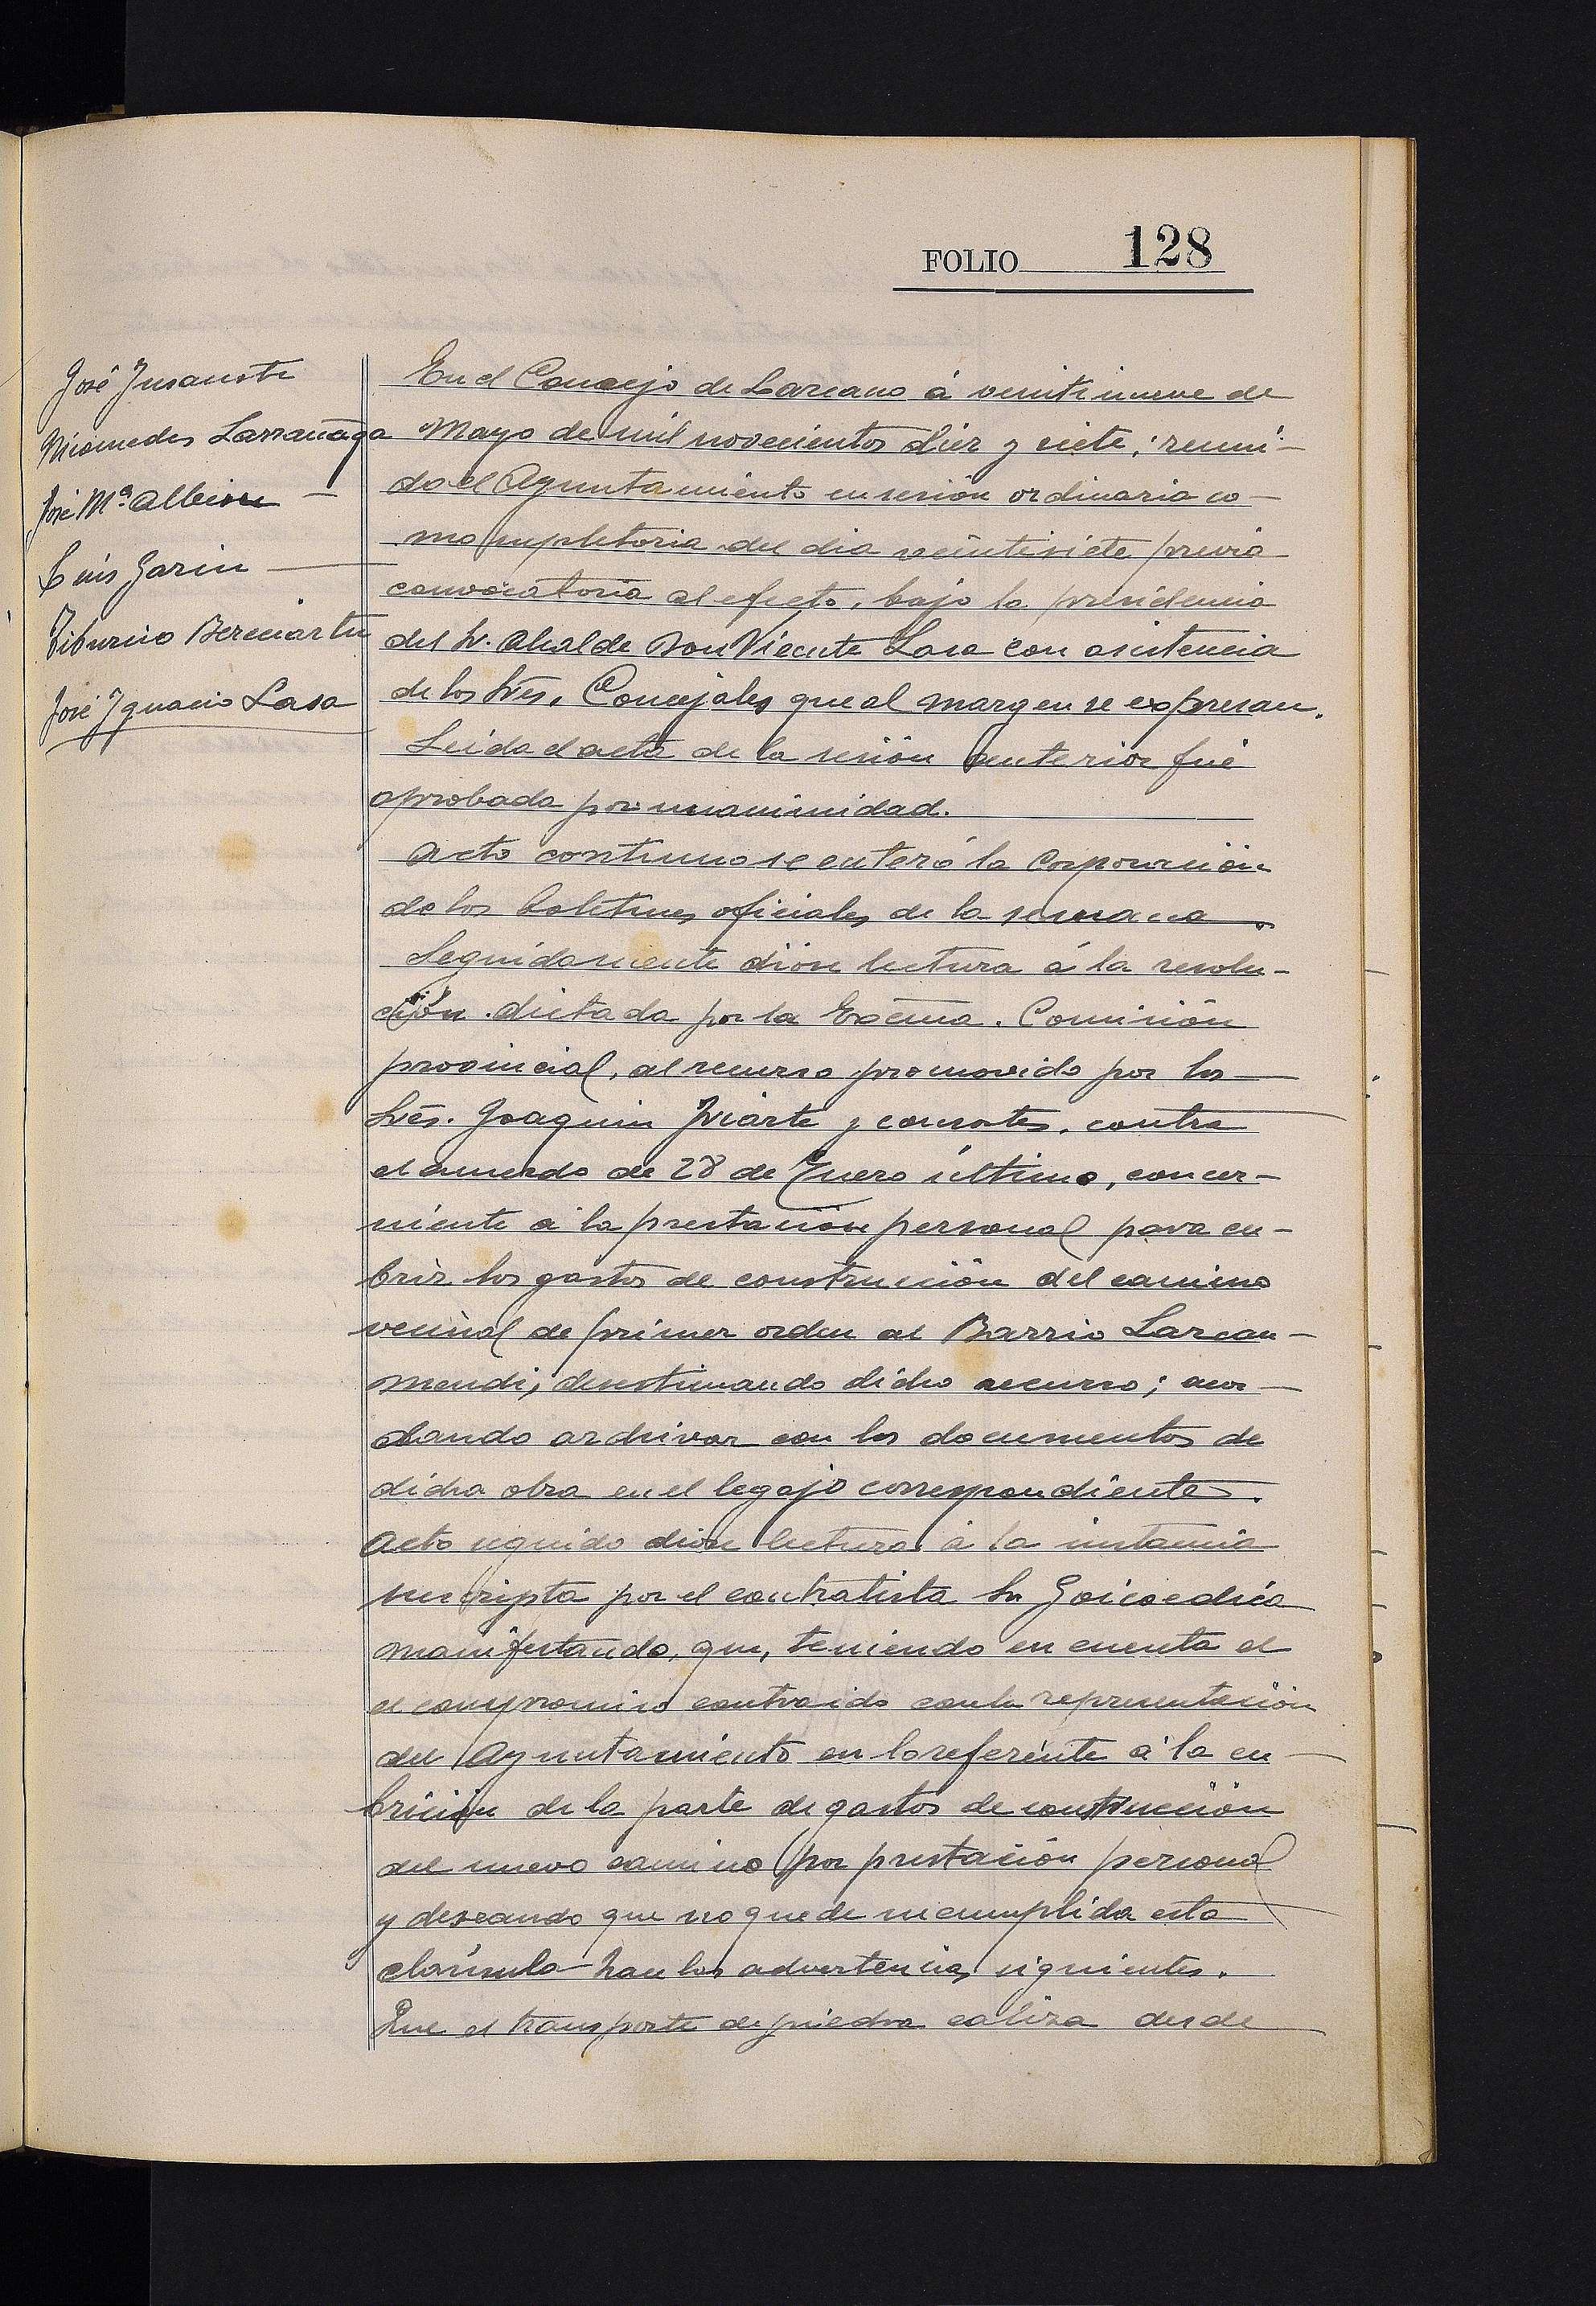 FOLIO 128
José Insausti
Nicomedes Larrañaga
José Mª. Albisu
Luis Garin
Tiburcio Bereciartu
José Ignacio Lasa
En el Concejo de Lazcano á veintinueve de
Mayo de mil novecientos diez y siete; reuni-
do el Ayuntamiento en sesión ordinaria co-
mo supletoria del dia veintisiete previa
convocatoria al efecto, bajo la presidencia
del Sr. Alcalde Don Vicente Lasa con asistencia
de los Sres. Concejales que al margen se expresan.
Leida el acta de la sesión anterior fué
aprobada por unanimidad.
Acto continuo se enteró la Corporación
de los boletines oficiales de la semana.
Seguidamente dióse lectura á la resolu-
ción dictada por la Excma. Comisión
provincial, al recurso promovido por los
Sres. Joaquin Iriarte y consortes, contra
el acuerdo de 28 de Enero último, concer-
niente á la prestación personal para cu-
brir los gastos de construcción del camino
vecinal de primer orden al Barrio Lazcau-
mendi, desestimando dicho recurso; acor-
dando archivar con los documentos de
dicha obra en el legajo correspondiente.
Acto seguido dióse lectura á la instancia
suscripta por el contratista Sr Goicoechea
manifestando, que, teniendo en cuenta el
el compromiso contraido con la representación
del Ayuntamiento en lo referente á la cu-
brición de la parte de gastos de construcción
del nuevo camino por prestación personal
y deseando que no quede incumplida esta
claúsula hace las advertencias siguientes.
Que el transporte de piedra caliza desde